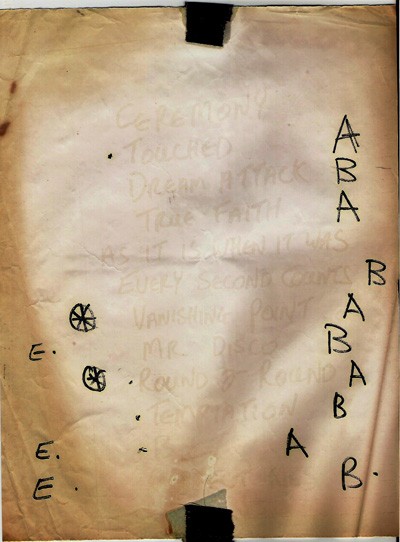 CEREMONY
TOUCHED A
DREAM ATTACK B
TRUE FAITH A
AS IT IS WHEN IT WAS
EVERY SECOND COUNTS B
VANISHING POINT A
E. MR. DISCO B
ROUND & ROUND A
TEMPTATION B
E. A
E. B.